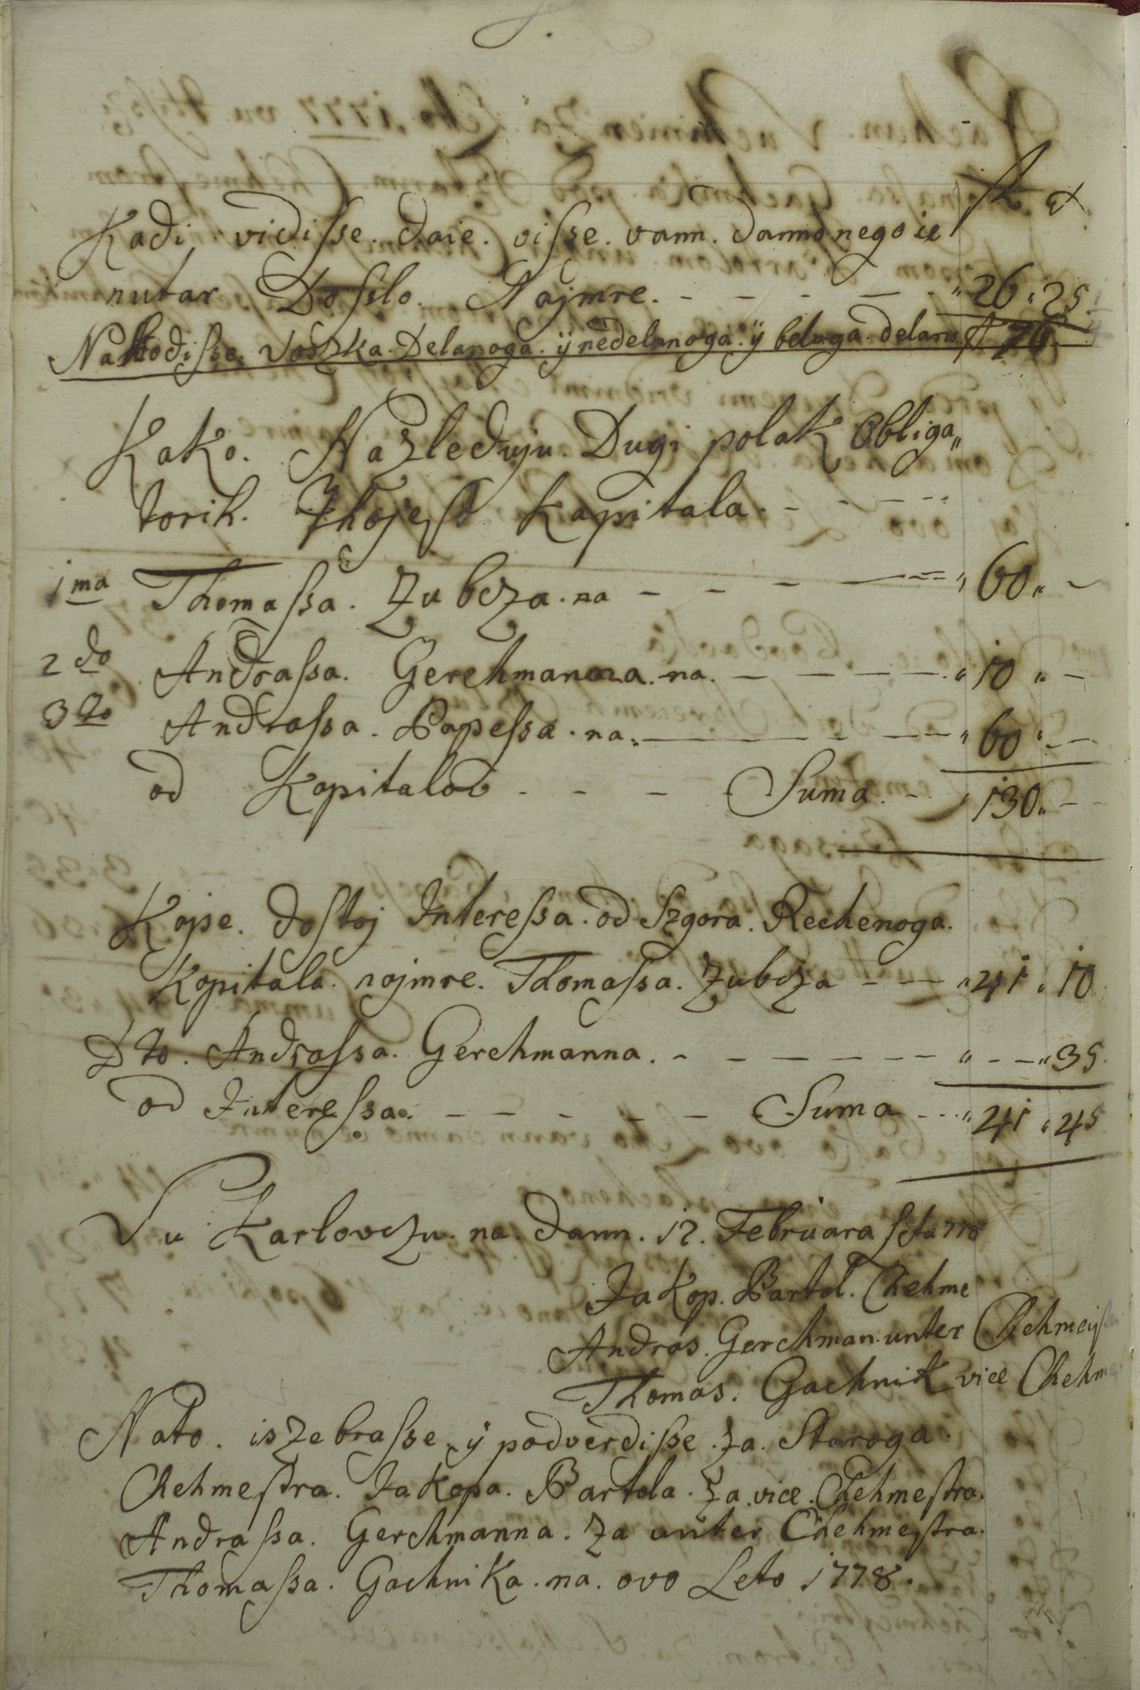 fl xr
Kadi vidisse. daie. visse. vann. danno nego ie
nutar Dosslo. Najmre. - - - - - " 26 " 25
Nahodisse. Voszka Delanoga. ÿ nedelanoga. ÿ beloga delano fl 76
Kako. Nazleduju. Dugi polak Obliga„
torih. Thojest Kapitala. - - -
1ma Thomassa. Zubcza. na - - - - " 60 " -
2do Andrassa. Gerchmanna. na. - - - - " 10 " -
3to Andrassa. Papessa. na. - - - " 60 " -
od Kapitalov - - - Suma. - " 130 " -
Kojse. dostoj Interessa. od Szgora. Rechenoga.
Kapitala. najmre. Thomassa. Zubcza - - - " 41 " 10
Dto. Andrassa. Gerchmanna. - - - - - " - - " 35
od Interessa. - - - - - Suma - - " 41 " 45
Vu Karlovczu. na. dann. 12. Februara 778
Jakop. Bartol. Chehme
Andras. Gerchman. unter Chehmeÿs
Thomas. Gachnik vice Chehm
Nato. iszebrasse ÿ podverdisse. za. Staroga
Chehmestra. Jakopa. Bartola. za. vice. Chehmestra.
Andrassa. Gerchmanna. za unter Chehmestra.
Thomassa. Gachnika. na. ovo Leto 1778.